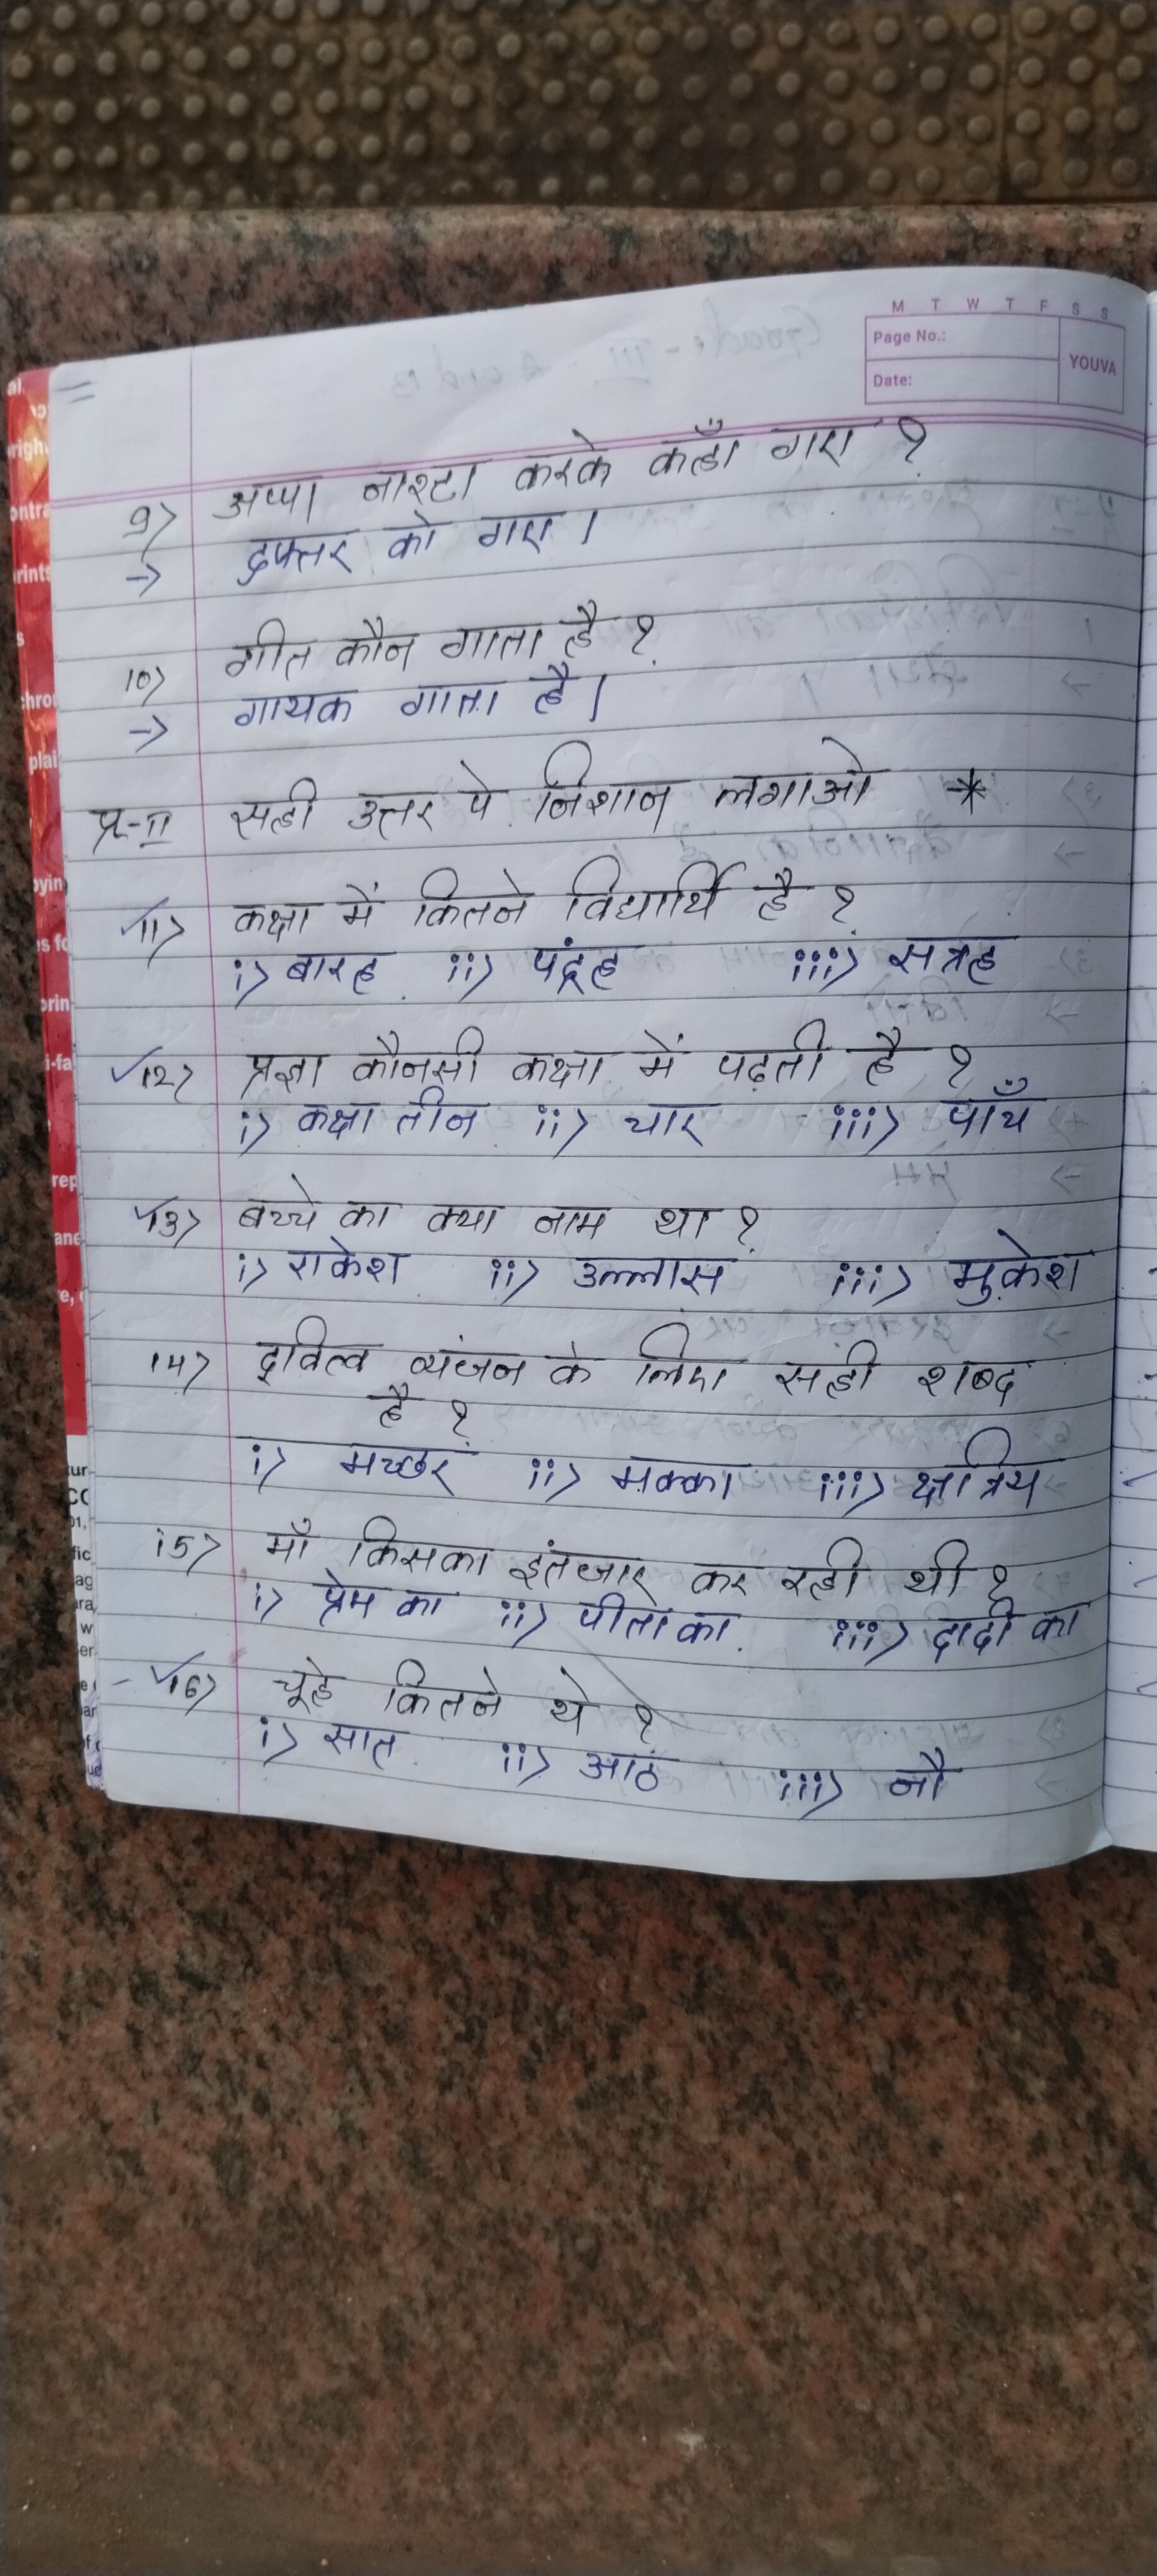 M T W T F S S
Page No.:
YOUVA
Date:
9> अप्पा नाश्टा करके कहाँ गए ?
→ दफ्तर को गए ।
10> गीत कौन गाता है ?
→ गायक गाता है ।
प्र-II सही उत्तर पे निशान लगाओ *
✓11> कक्षा में कितने विद्यार्थि है ?
i> बारह ii> पंद्रह iii> सत्रह
✓12> प्रज्ञा कौनसी कक्षा में पढ़ती है ?
i> कक्षा तीन ii> चार iii> पाँच
✓13> बच्चे का क्या नाम था ?
i> राकेश ii> उल्लास iii> मुकेश
14> द्वित्व व्यंजन के लिए सही शब्द
है ?
i> मच्छर ii> मक्का iii> क्षत्रिय
15> माँ किसका इंतजार कर रही थी ?
i> प्रेम का ii> पीता का iii> दादी का
✓16> चूहे कितने थे ?
i> सात ii> आठ iii> नौ